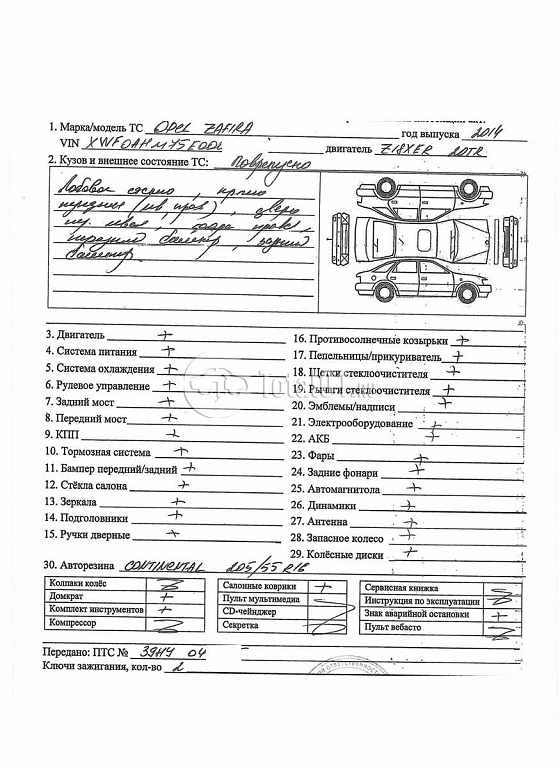 1. Марка/модель ТС OPEL ZAFIRA год выпуска 2014
VIN двигатель Z18XER
2. Кузов и внешнее состояние ТС:
Лобовое
передняя
бампер
3. Двигатель +
4. Система питания +
5. Система охлаждения +
6. Рулевое управление +
7. Задний мост +
8. Передний мост +
9. КПП +
10. Тормозная система +
11. Бампер передний/задний +
12. Стёкла салона +
13. Зеркала +
14. Подголовники +
15. Ручки дверные +
16. Противосолнечные козырьки +
17. Пепельницы/прикуриватель +
18. Щетки стеклоочистителя +
19. Рычаги стеклоочистителя +
20. Эмблемы/надписи +
21. Электрооборудование +
22. АКБ +
23. Фары +
24. Задние фонари +
25. Автомагнитола +
26. Динамики +
27. Антенна +
28. Запасное колесо +
29. Колёсные диски +
30. Авторезина CONTINENTAL 205/55 R16
Колпаки колёс
Домкрат +
Комплект инструментов +
Компрессор
Салонные коврики +
Пульт мультимедиа
CD-чейнджер
Секретка
Сервисная книжка
Инструкция по эксплуатации
Знак аварийной остановки +
Пульт вебасто
Передано: ПТС № 04
Ключи зажигания, кол-во 2
TOTAL01.RU